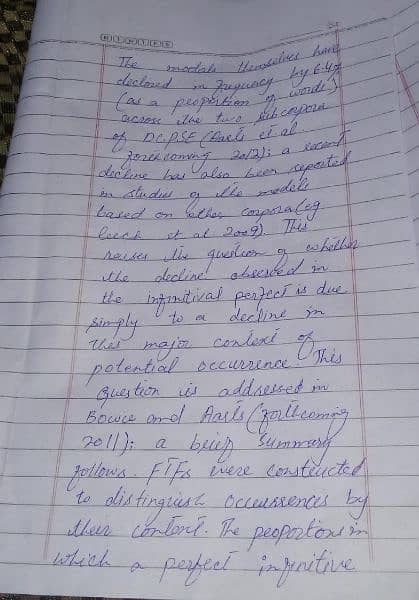 The modals themselves have
declined in frequency by 6.4%
(as a proportion of words)
across the two subcorpora
of DCPSE (Aarts et al
forthcoming 2012); a recent
decline has also been reported
in studies of the modals
based on other corpora (eg
Leech et al 2009). This
raises the question of whether
the decline observed in
the infinitival perfect is due
simply to a decline in
this major context of
potential occurrence. This
question is addressed in
Bowie and Aarts (forthcoming
2011); a brief summary
follows. FTFs were constructed
to distinguish occurrences by
their content. The proportions in
which a perfect infinitive